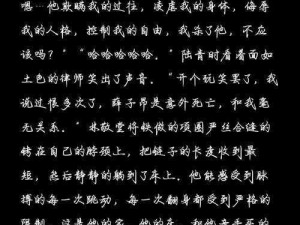 嗯…他欺瞒我的过往，凌虐我的身体，侮辱
我的人格，控制我的自由，我杀了他，不应
该吗？”“哈哈哈哈哈。”陆青时看着面如
土色的律师笑出了声音。“开个玩笑罢了，我
说过很多次了，薛子昂是意外死亡，和我毫
无关系。”林敬堂将铁做的项圈严丝合缝的
锁在自己的脖颈上，把链子的长度收到最
短，然后静静的躺到了床上。他能感受到脉
搏的每一次跳动，每一次翻身都受到严格的
限制，这是他的家，他的